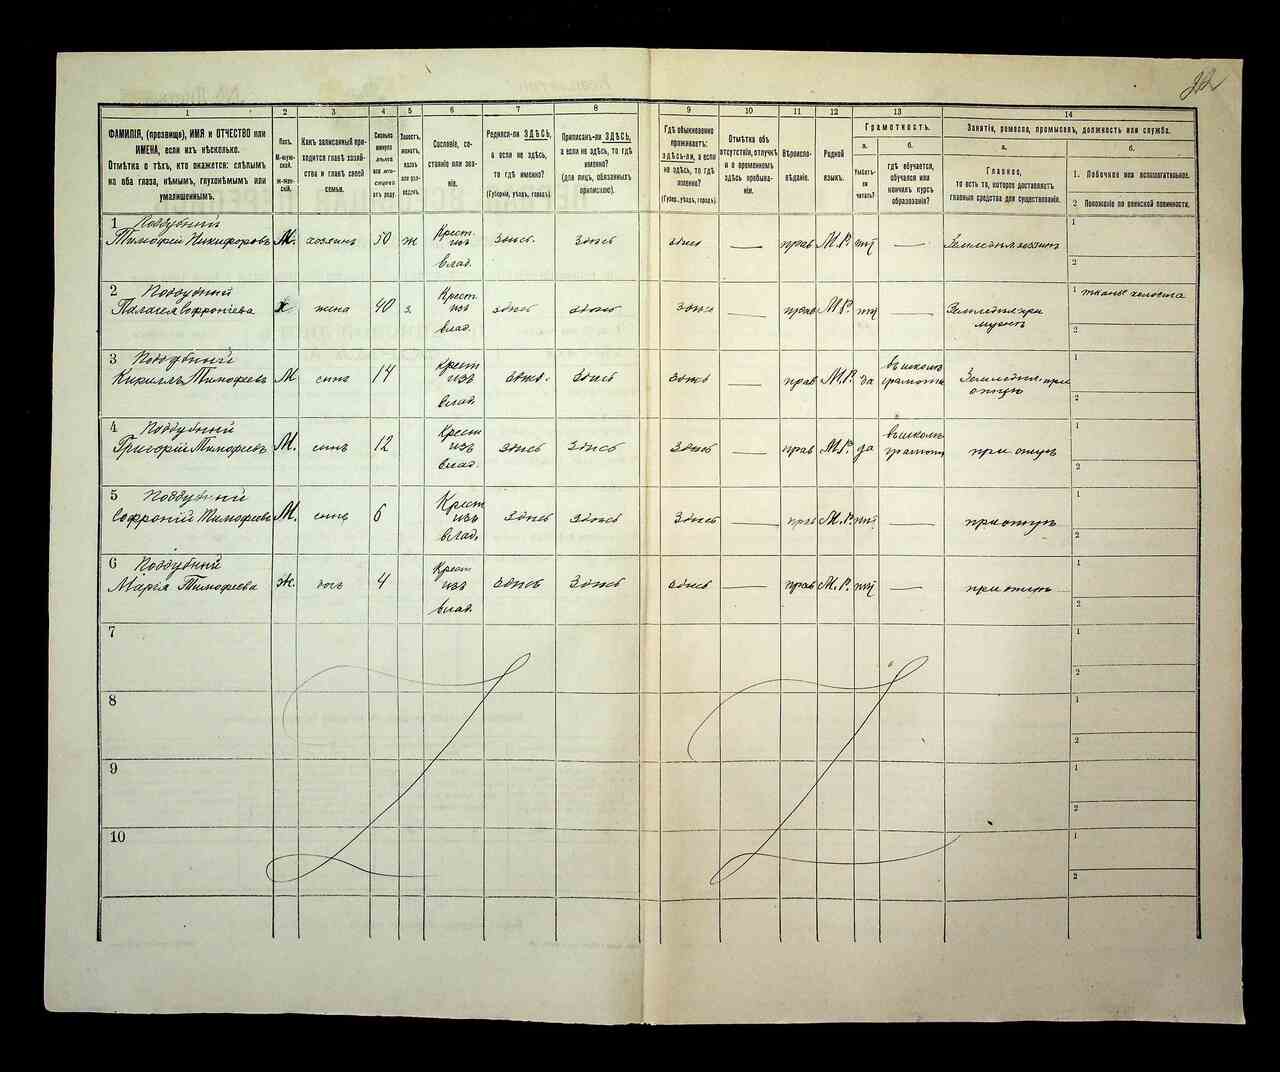 1
2
3
4
5
6
7
8
9
10
11
12
13
14
ФАМИЛІЯ, (прозвище), ИМЯ и ОТЧЕСТВО или
ИМЕНА, если ихъ нѣсколько.
Отмѣтка о тѣхъ, кто окажется: слѣпымъ
на оба глаза, нѣмымъ, глухонѣмымъ или
умалишеннымъ.
Полъ.
М-муж-
ской.
Ж-жен-
скій.
Какъ записанный при-
ходится главѣ хозяй-
ства и главѣ своей
семьи.
Сколько
минуло
лѣтъ
или мѣся-
цевъ
отъ роду.
Холостъ,
женатъ,
вдовъ
или раз-
веденъ.
Сословіе, со-
стояніе или зва-
ніе.
Родился-ли ЗДѢСЬ,
а если не здѣсь,
то гдѣ именно?
(Губернія, уѣздъ, городъ).
Приписанъ-ли ЗДѢСЬ,
а если не здѣсь, то гдѣ
именно?
(для лицъ, обязанныхъ
припискою).
Гдѣ обыкновенно
проживаетъ:
здѣсь-ли, а если
не здѣсь, то гдѣ
именно?
(Губер., уѣздъ, городъ)
Отмѣтка объ
отсутствіи, отлучкѣ
и о временномъ
здѣсь пребыва-
ніи.
Вѣроиспо-
вѣданіе.
Родной
языкъ.
Грамотность.
а.
Умѣетъ-
ли
читать?
б.
гдѣ обучается,
обучался или
кончилъ курсъ
образованія?
Занятіе, ремесло, промыселъ, должность или служба.
а.
Главное,
то есть то, которое доставляетъ
главныя средства для существованія.
б.
1. Побочное или вспомогательное.
2 Положеніе по воинской повинности.
1 Поддубный
Тимофій Никифоровъ М. хозяинъ 50 ж Крест. изъ влад. здѣсь. здѣсь здѣсь — прав М.Р. нѣт — 1
2
2 Поддубный
Палагея Софроніева жена 40 з. Крест. изъ влад. здѣсь здѣсь здѣсь — прав М.Р. нѣт — Земледѣл. при мужѣ 1 тканье холста
2
3 Поддубный
Кириллъ Тимофеевъ М сынъ 14 Крест изъ влад. здѣсь. здѣсь здѣсь — прав. М.Р. да въ школѣ грамоты Земледѣл. при отцѣ 1
2
4 Поддубный
Григорій Тимофеевъ М. сынъ 12 Крест изъ влад. здѣсь здѣсь здѣсь — прав М.Р. да въ школѣ грамоты при отцѣ 1
2
5 Поддубный
Софроній Тимофеевъ М. сынъ 6 Крест изъ влад. здѣсь здѣсь здѣсь — прав М.Р. нѣт — при отцѣ 1
2
6 Поддубный
Марія Тимофеева ж. дочь 4 Крест изъ влад. здѣсь здѣсь здѣсь — прав М.Р. нѣт — при отцѣ 1
2
7
1
2
8
1
2
9
1
2
10
1
2